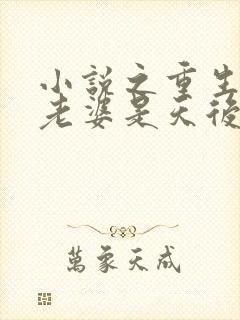 小說之重生
老婆是天後
萬象天成